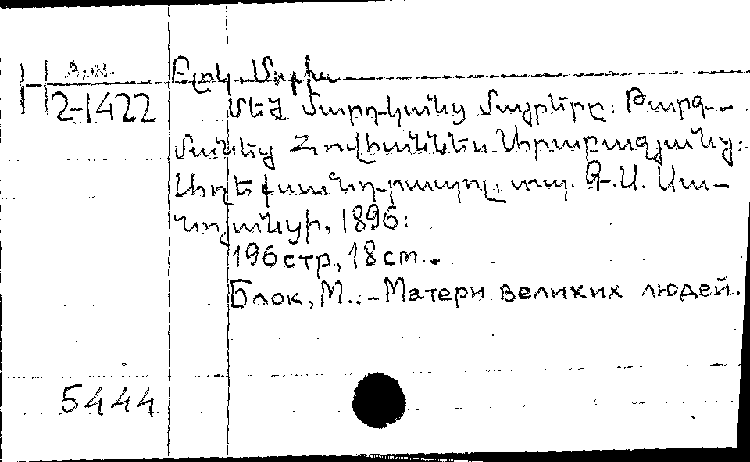 H
2-1422
Բլոկ, Մարիա
Մեծ մարդկանց մայրերը: Թարգ-
մանեց Հովհաննես Առաքելյանց:
Ալեքսանդրապոլ, տպ. Գ. Ս. Սա-
նոյանցի, 1896:
196 стр., 18 cm.
Блок, М.: - Матери великих людей.
5444